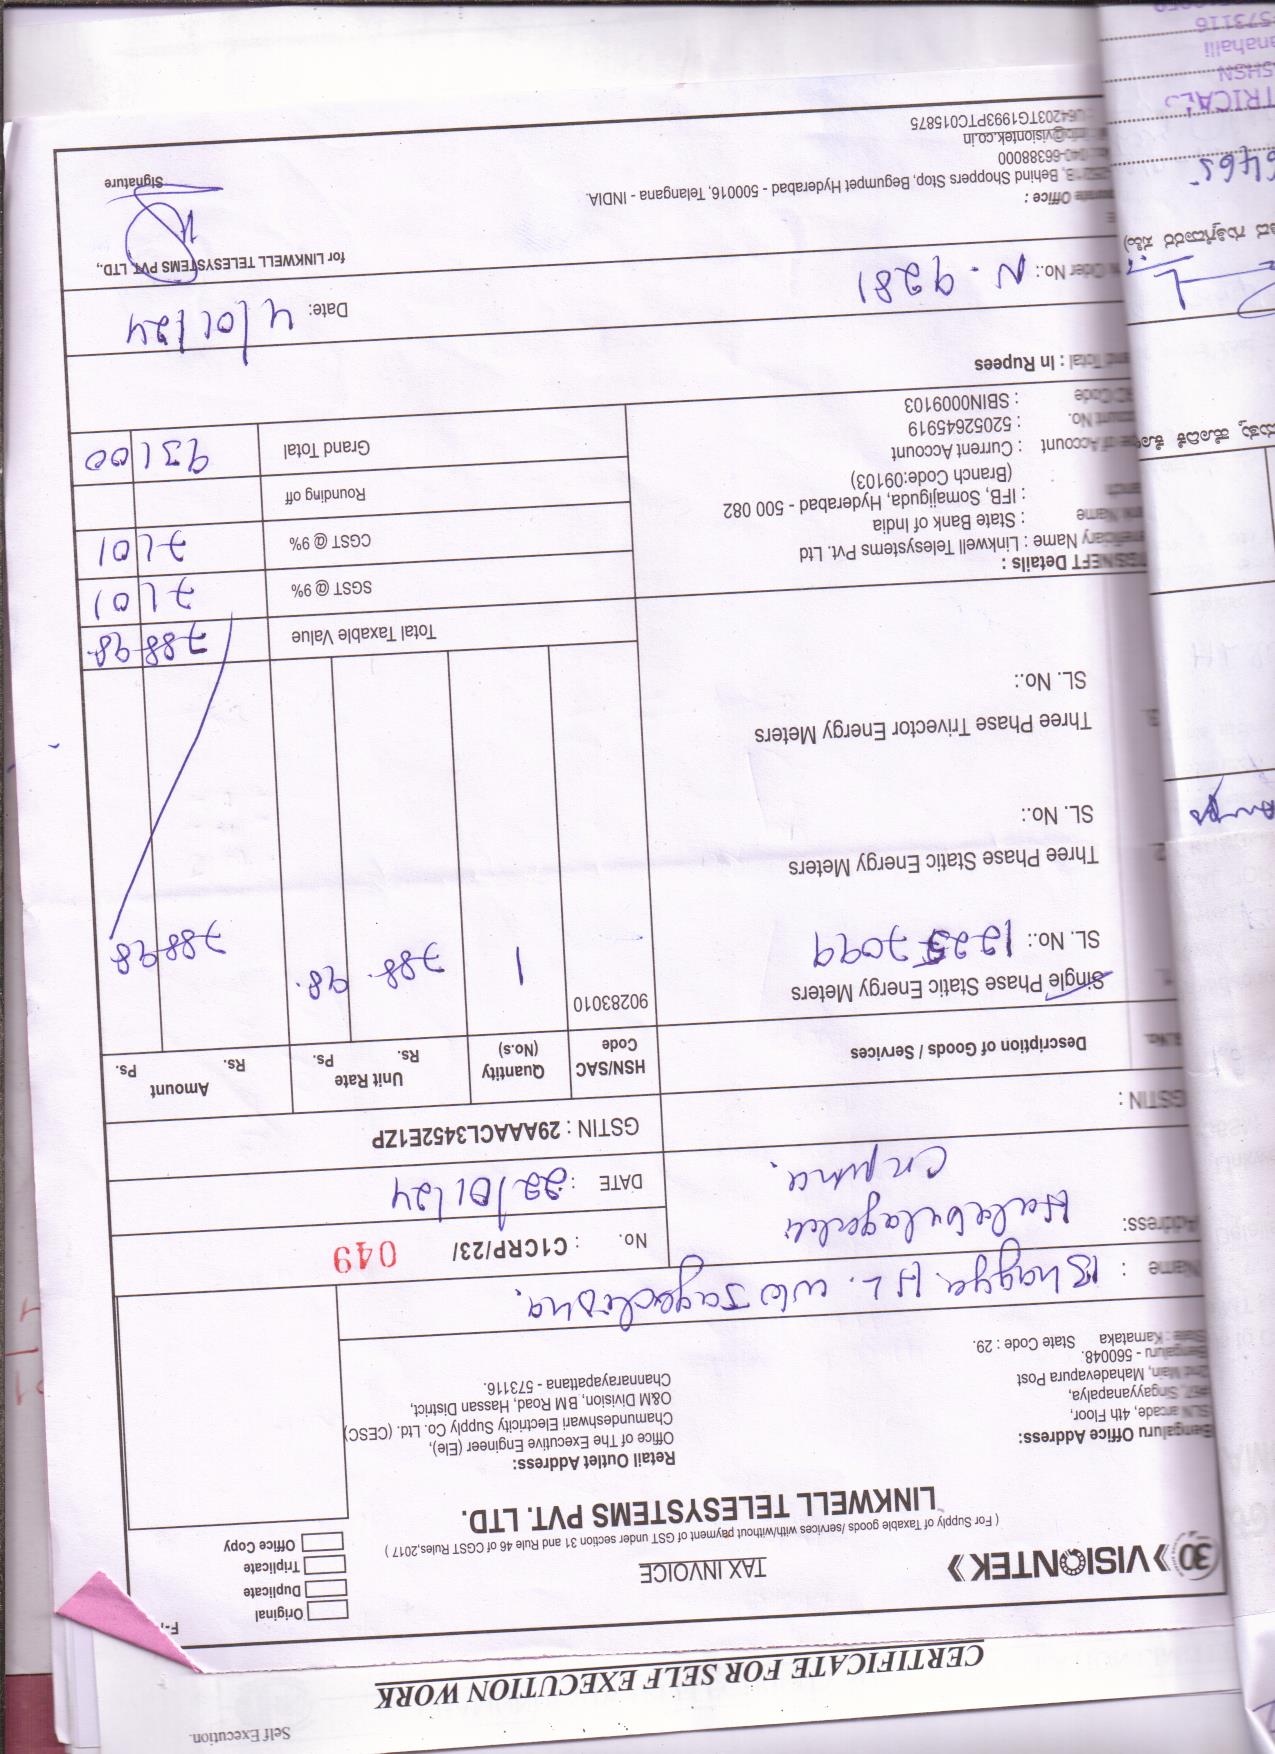 Self Execution.
CERTIFICATE FOR SELF EXECUTION WORK
30 VISIONTEK
TAX INVOICE
( For Supply of Taxable goods /services with/without payment of GST under section 31 and Rule 46 of CGST Rules,2017 )
LINKWELL TELESYSTEMS PVT. LTD.
Original
Duplicate
Triplicate
Office Copy
Bengaluru Office Address:
SLN arcade, 4th Floor,
Singayyanapalya,
2nd Main, Mahadevapura Post
Bengaluru - 560048.
State : Karnataka State Code : 29.
Retail Outlet Address:
Office of The Executive Engineer (Ele),
Chamundeshwari Electricity Supply Co. Ltd. (CESC)
O&M Division, BM Road, Hassan District,
Channarayapattana - 573116.
Name : Bhagya H L. w/o Jagadisha.
Address:
No. : C1CRP/23/ 049
DATE : 22/01/24
GSTIN :
GSTIN : 29AAACL3452E1ZP
Sl.No. Description of Goods / Services HSN/SAC Code Quantity (No.s) Unit Rate Rs. Ps. Amount Rs. Ps.
1. Single Phase Static Energy Meters 90283010
SL. No.: 12257099 1 788 98. 788 98
2. Three Phase Static Energy Meters
SL. No.:
3. Three Phase Trivector Energy Meters
SL. No.:
Total Taxable Value 788 98
SGST @ 9% 71 01
CGST @ 9% 71 01
Rounding off
Grand Total 931 00
RTGS/NEFT Details :
Beneficiary Name : Linkwell Telesystems Pvt. Ltd
Bank Name : State Bank of India
Branch : IFB, Somajiguda, Hyderabad - 500 082
(Branch Code:09103)
Type of Account : Current Account
Account No. : 52052645919
: SBIN0009103
Grand Total : In Rupees
Order No.: N. 9281
Date: 4/01/24
for LINKWELL TELESYSTEMS PVT. LTD.,
Signature
Corporate Office :
Behind Shoppers Stop, Begumpet Hyderabad - 500016, Telangana - INDIA.
040-66388000
info@visiontek.co.in
U64203TG1993PTC015875
TRICALS
573116